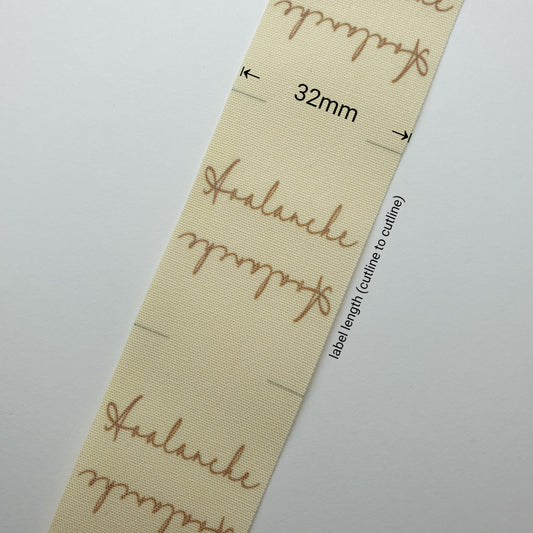 Avalanche
32mm
Avalanche
Avalanche
label length (cutline to cutline)
Avalanche
Avalanche